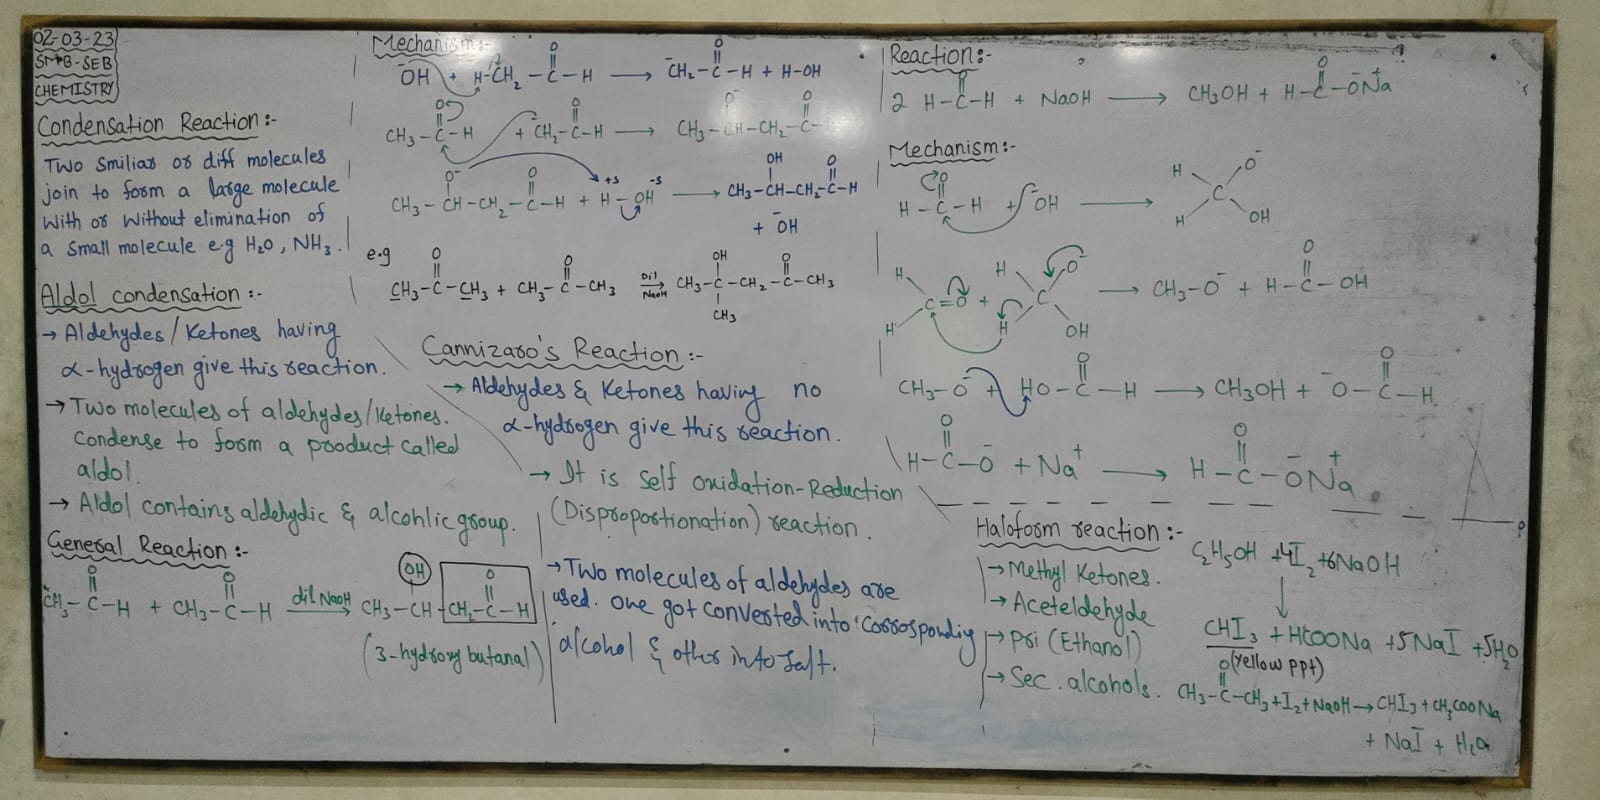 02-03-23
SMB-SEB
CHEMISTRY
Condensation Reaction:-
Two Smiliar or diff molecules
join to form a large molecule
with or without elimination of
a small molecule e.g H₂O, NH₃.
Aldol condensation :-
→ Aldehydes/Ketones having
α-hydrogen give this reaction.
→ Two molecules of aldehydes/Ketones.
Condense to form a product called
aldol.
→ Aldol contains aldehydic & alcohlic group.
General Reaction:-
O O OH O
CH₃-C-H + CH₃-C-H dil NaOH → CH₃-CH-CH₂-C-H
(3-hydroxy butanal)
Mechanism:-
O O
⁻OH + H-CH₂-C-H → ⁻CH₂-C-H + H-OH
O O O⁻ O
CH₃-C-H + ⁻CH₂-C-H → CH₃-CH-CH₂-C-
O⁻ O +δ -δ OH O
CH₃-CH-CH₂-C-H + H-OH → CH₃-CH-CH₂-C-H
+ ⁻OH
e.g
O O OH O
CH₃-C-CH₃ + CH₃-C-CH₃ Dil NaOH → CH₃-C-CH₂-C-CH₃
CH₃
Cannizaro's Reaction:-
→ Aldehydes & Ketones having no
α-hydrogen give this reaction.
→ It is Self oxidation-Reduction
(Disproportionation) reaction.
→ Two molecules of aldehydes are
used. One got converted into corrospondiy
alcohol & other into salt.
Reaction:-
O O
2 H-C-H + NaOH → CH₃OH + H-C-O⁻Na⁺
Mechanism:-
O H O⁻
H-C-H + ⁻OH → C
H OH
H H O⁻ O
C=O + C → CH₃-O⁻ + H-C-OH
H H OH
O O
CH₃-O⁻ + HO-C-H → CH₃OH + ⁻O-C-H
O O
H-C-O⁻ + Na⁺ → H-C-O⁻Na⁺
Haloform reaction:-
→ Methyl Ketones.
→ Aceteldehyde
→ Pri (Ethanol)
→ Sec. alcohols.
C₂H₅OH + 4I₂ + 6NaOH
↓
CHI₃ + HCOONa + 5NaI + 5H₂O
(Yellow ppt)
O
CH₃-C-CH₃ + I₂ + NaOH → CHI₃ + CH₃COONa
+ NaI + H₂O